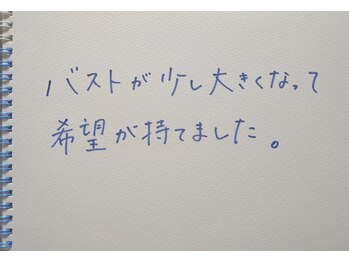 バストが少し大きくなって
希望が持てました。